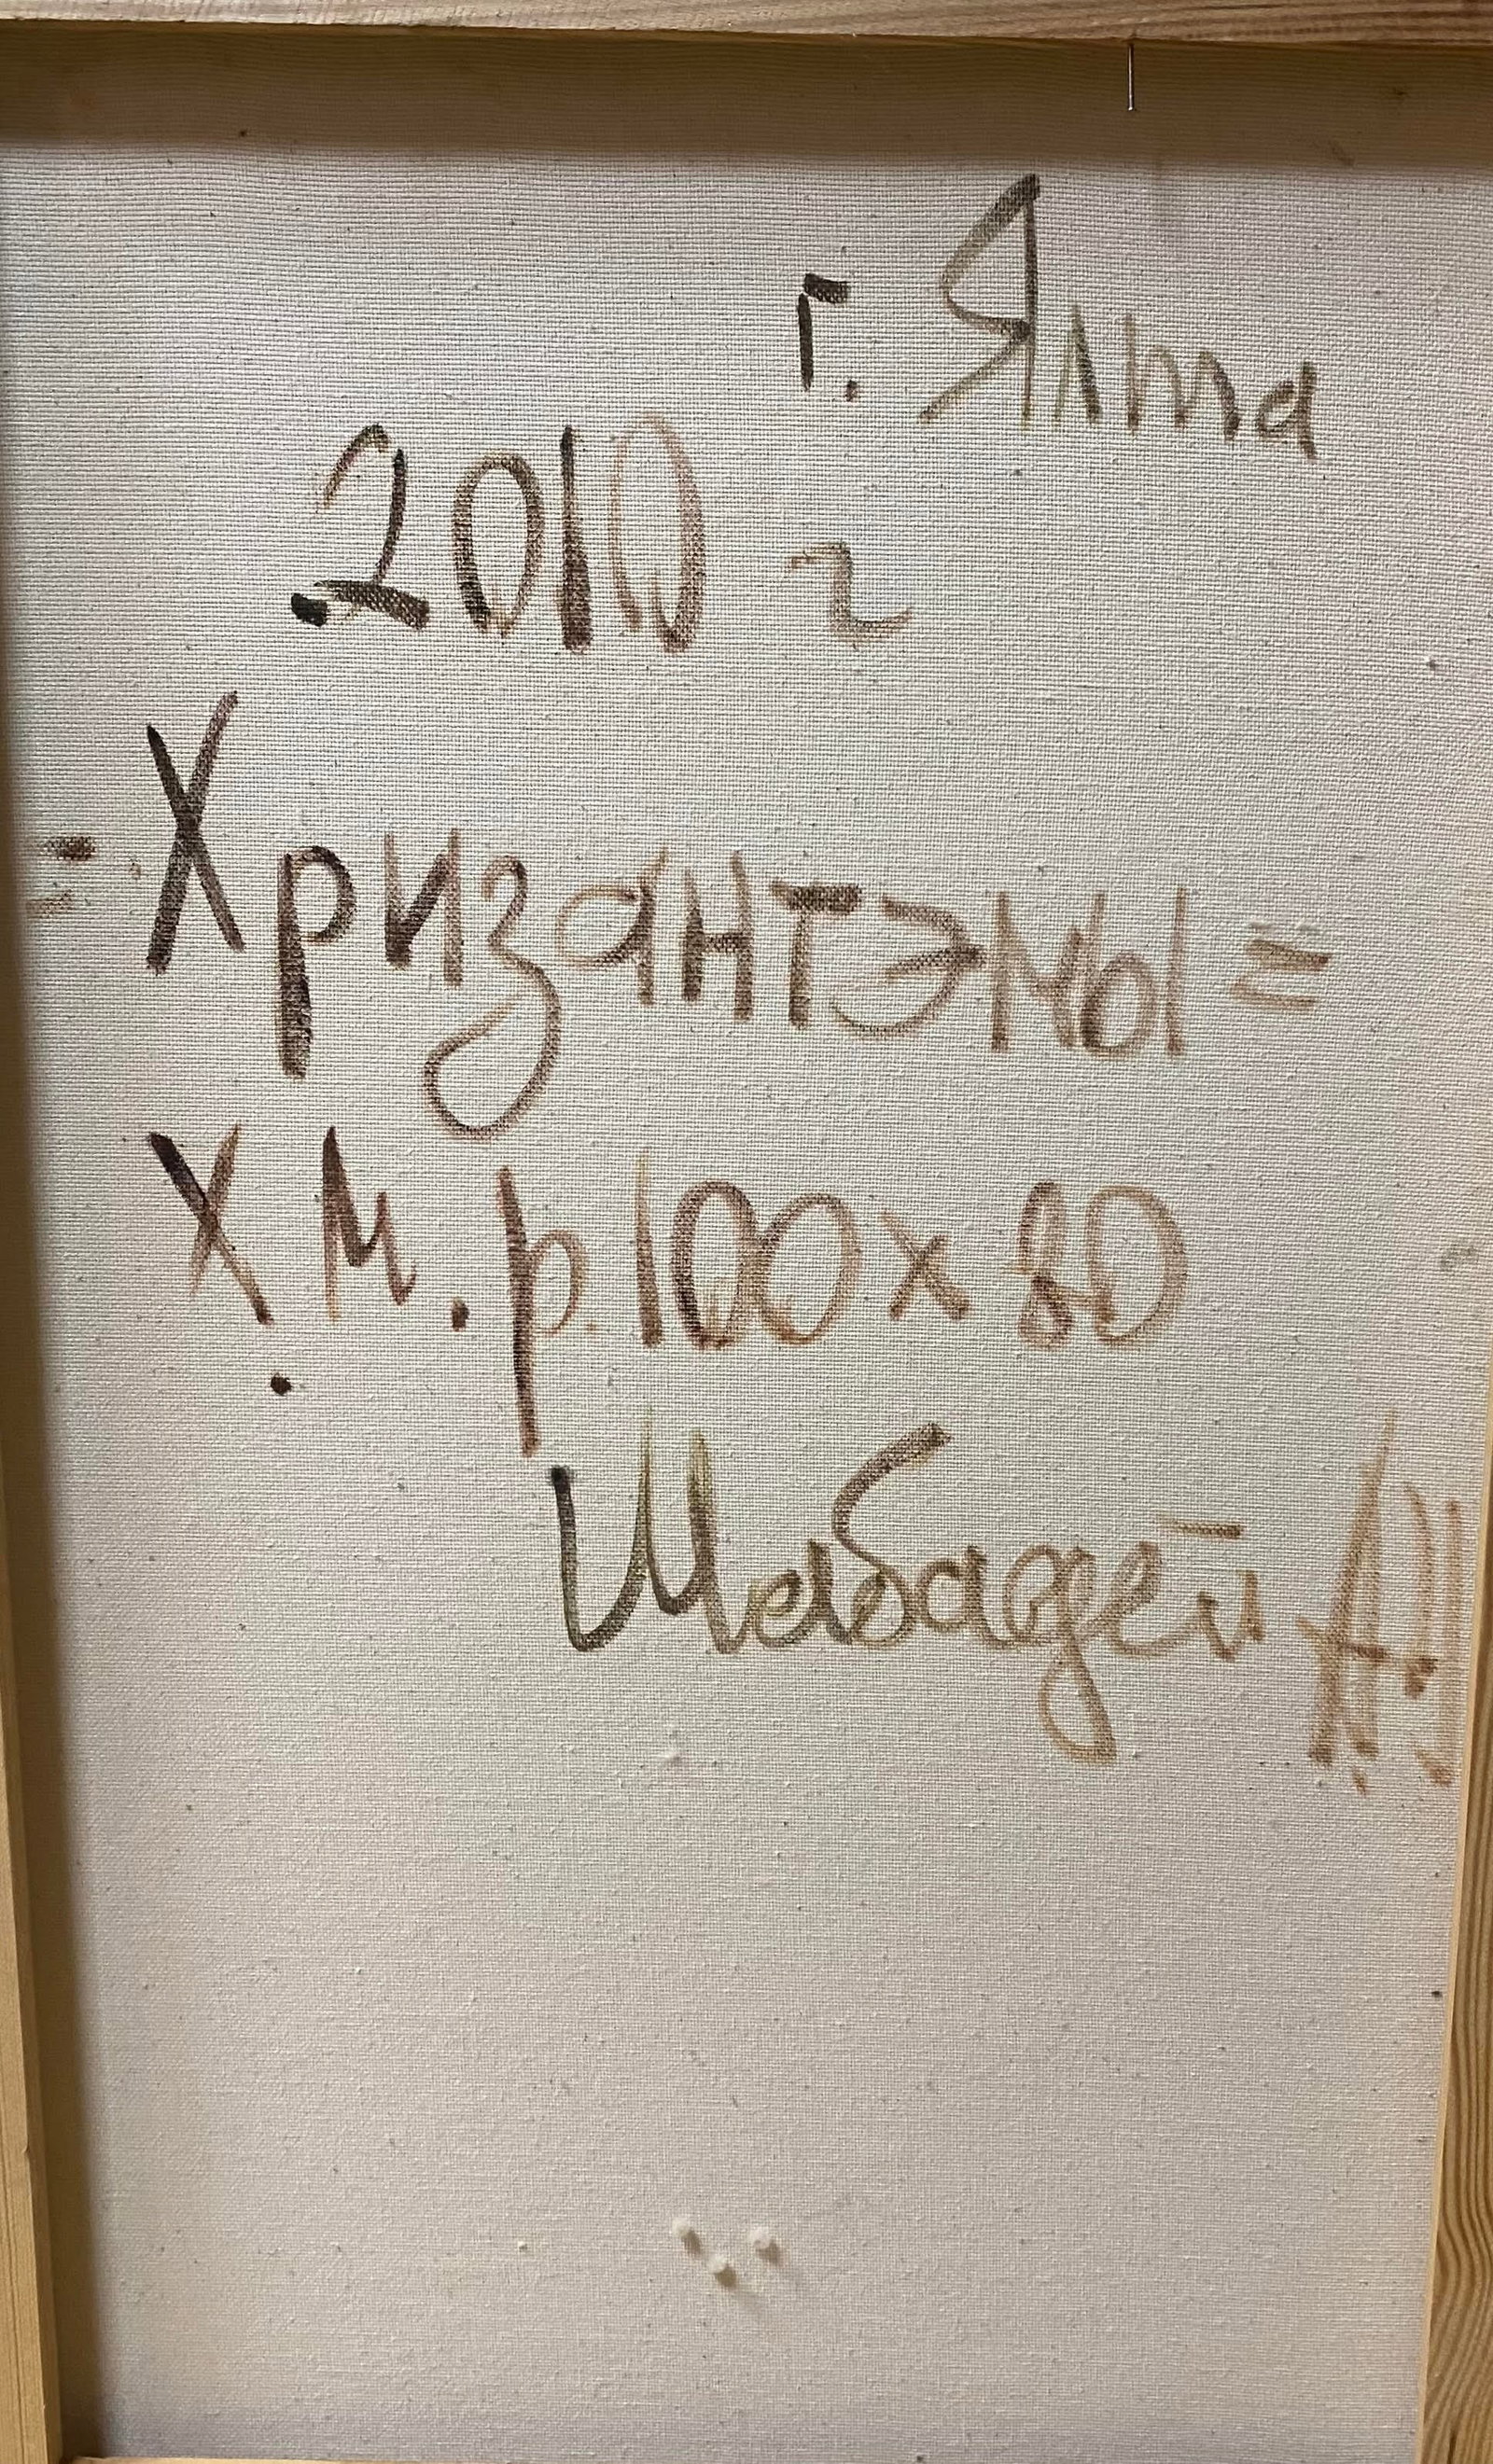 г. Ялта
2010 г
= Хризантэмы =
Х.М. р. 100 х 80
Шабадей А.И.